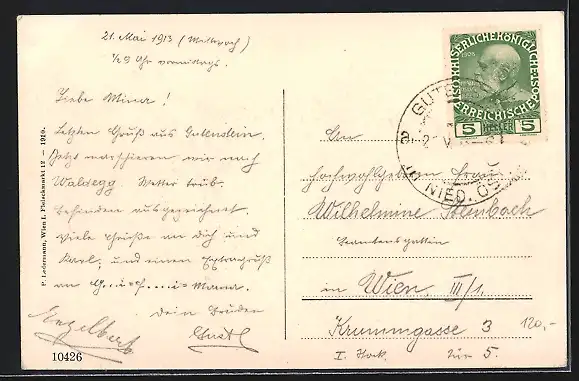 21. Mai 1913 (Mittwoch)
1/2 9 Uhr vormittags.
Liebe Minna!
Letzten Gruß aus Gutenstein.
Jetzt marschieren wir nach
Waldegg. Wetter trüb.
Befinden ausgezeichnet.
Viele Grüße an dich und
Karl, und einen Extragruß
an G...i.s f.....i. Mama.
Dein Bruder
Gustl
Engelbert
10426
P. Ledermann, Wien I. Fleischmarkt 12 — 1910.
1908
KAISERLICHE KÖNIGLICHE
ÖSTERREICHISCHE POST
5 HELLER 5
GUTENSTEIN
NIED. ÖST
An
hochwohlgeboren Frau
Wilhelmine Steinbach
Beamtensgattin
in Wien III/1.
Krummgasse 3
I. Stock. Tür 5.
120,-